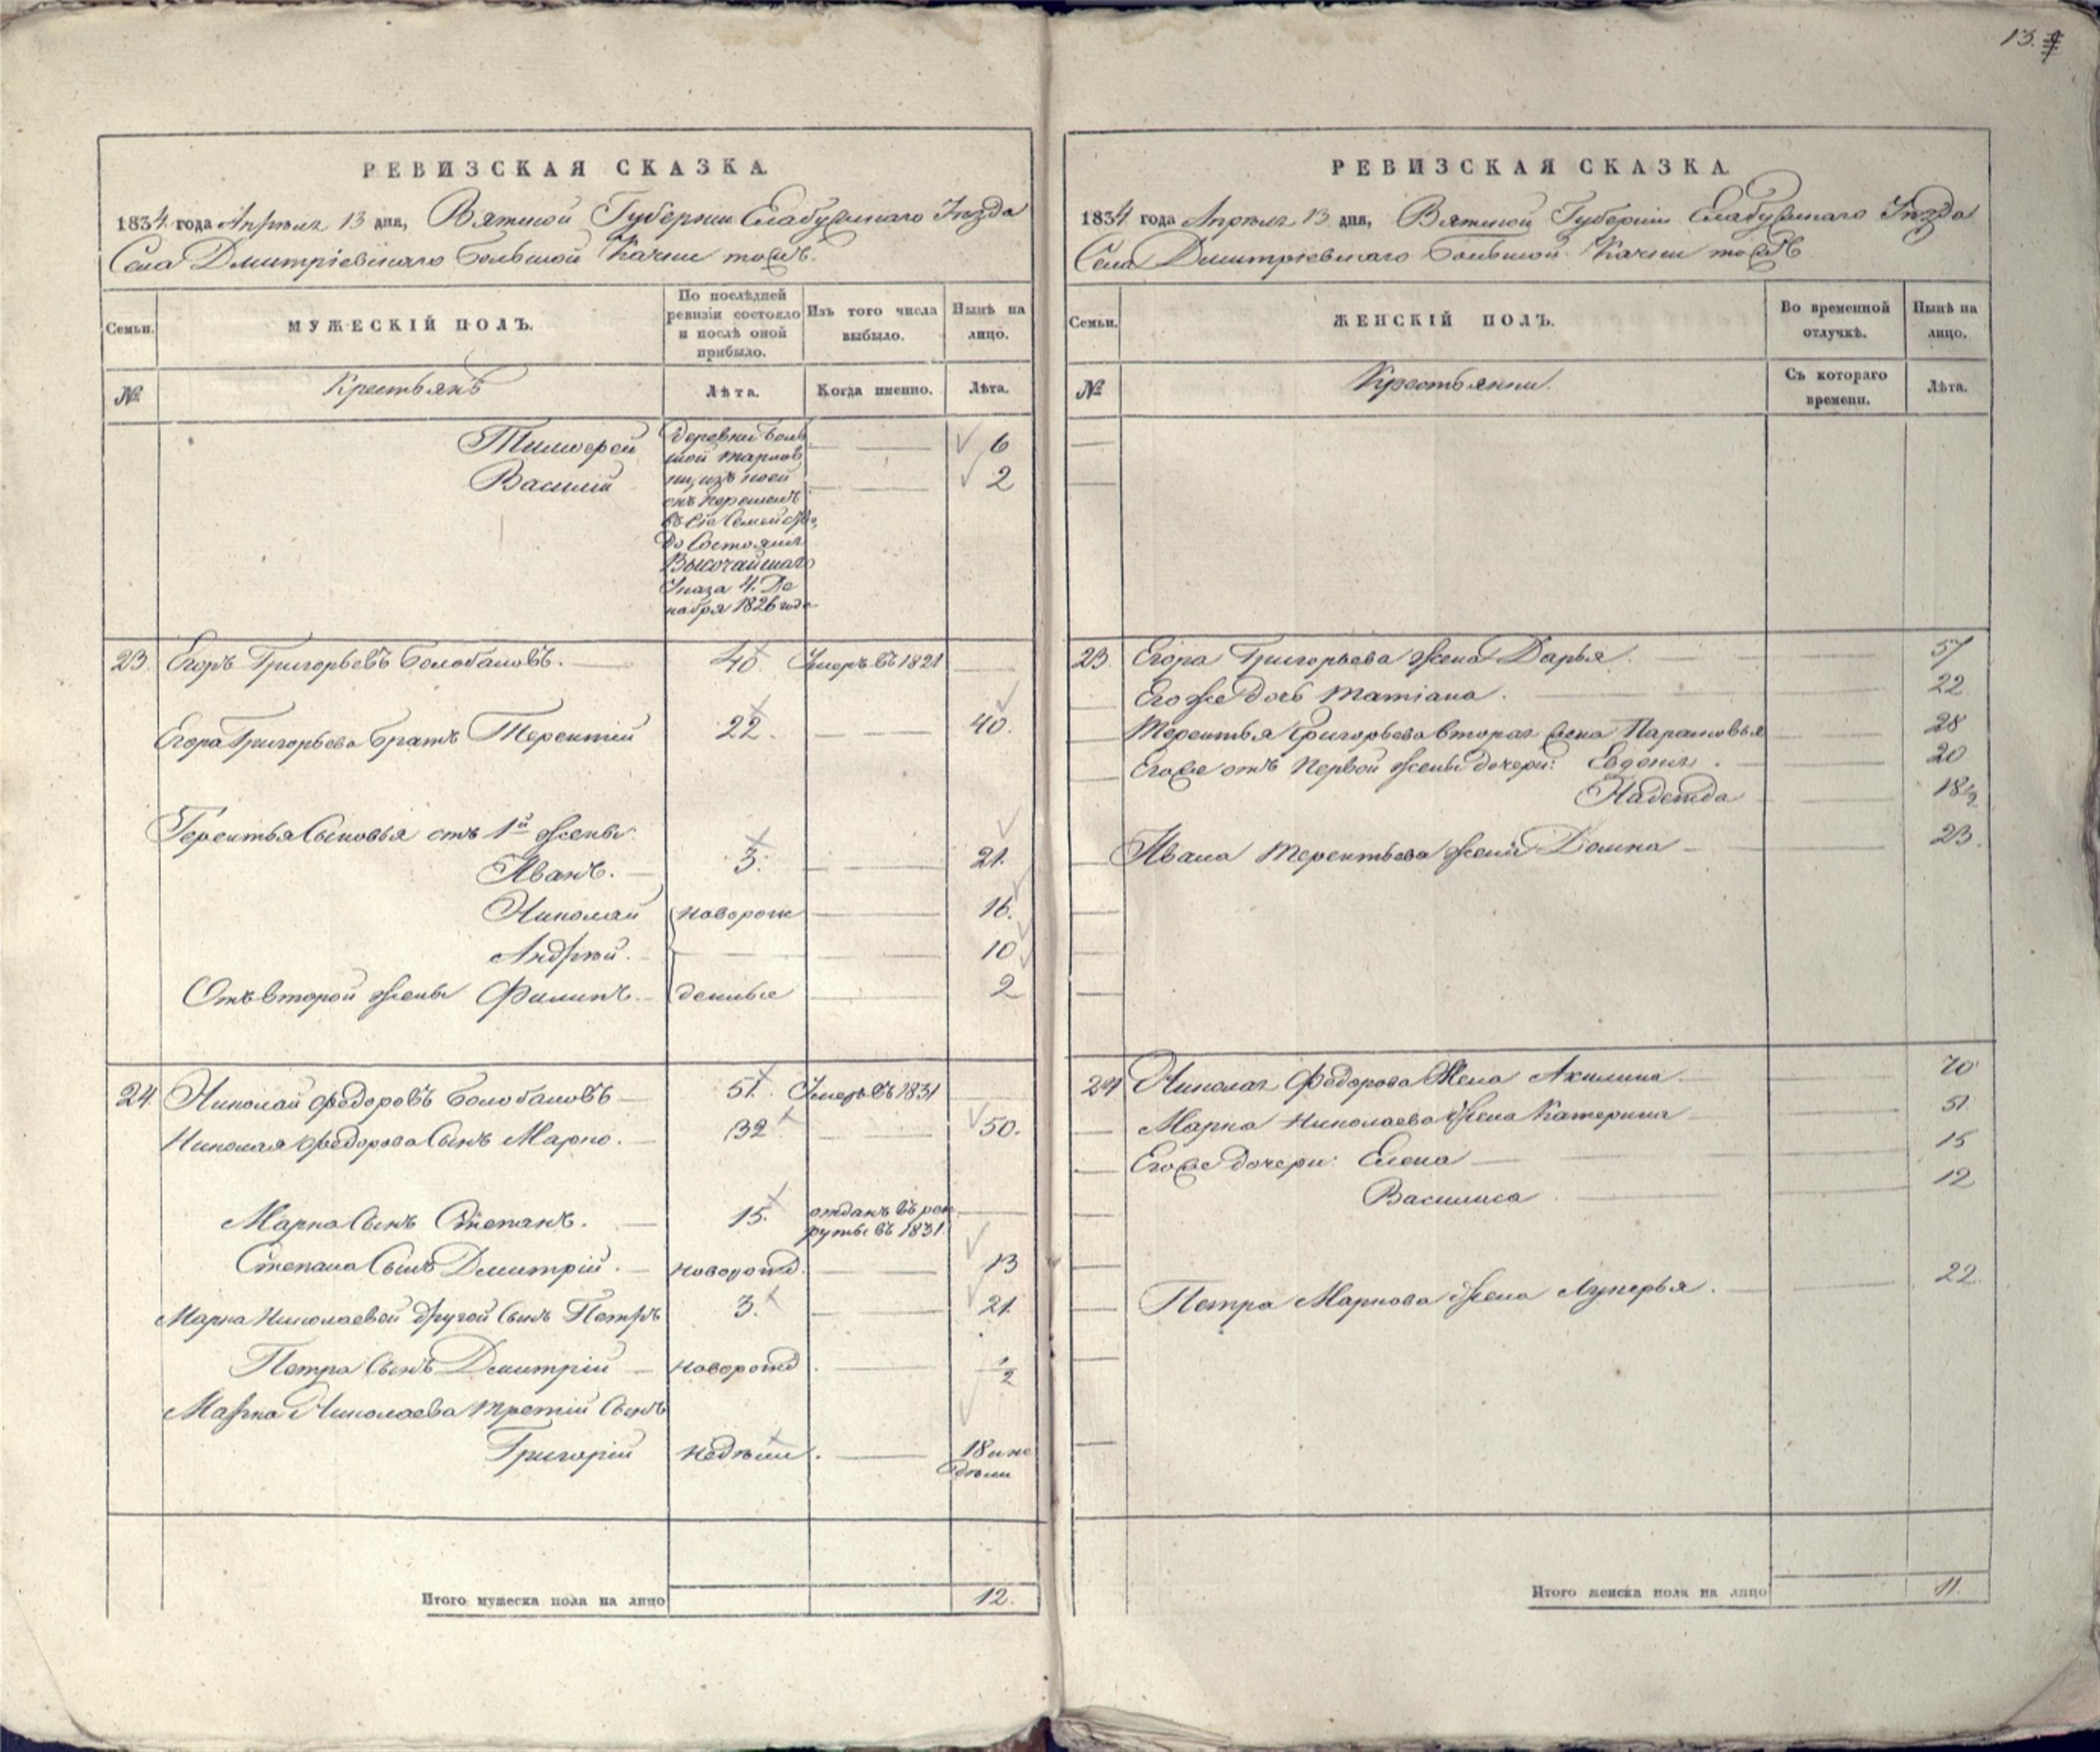 13.
РЕВИЗСКАЯ СКАЗКА.
1834 года Апрѣля 13 дня, Вятской Губерніи Елабужскаго Уѣзда
Села Дмитріевскаго Большой Качки тожъ.
Семьи.
МУЖЕСКІЙ ПОЛЪ.
По послѣдней ревизіи состояло и послѣ оной прибыло.
Изъ того числа выбыло.
Нынѣ на лицо.
№
Крестьянъ
Лѣта.
Когда именно.
Лѣта.
Тимоѳей
6
Василій
2
деревни Боль
шой
изъ коей
онъ перешелъ
въ сіе Семейство,
до Состоянія
Высочайшаго
Указа 4. Де
кабря 1826 года
23. Егоръ Григорьевъ Болобановъ. 40. Умеръ въ 1821
Егора Григорьева братъ Терентій 22. 40.
Терентья Сыновья отъ 1й жены
Иванъ. 3. 21.
Николай новорож 16.
Андрей. 10
Отъ второй жены Филипъ. денные 2
24. Николай Федоровъ Болобановъ 51. Умеръ въ 1831
Николая Федорова Сынъ Марко. 32 50.
Марка Сынъ Степанъ. 15. отданъ въ рек
руты въ 1831.
Степана Сынъ Дмитрій. новорожд. 13
Марка Николаева другой Сынъ Петръ 3. 21.
Петра Сынъ Дмитрій новорожд. 1/2
Марка Николаева третій Сынъ
Григорій недѣли. 18 и не
дѣли
Итого мужеска пола на лицо 12.
РЕВИЗСКАЯ СКАЗКА.
1834 года Апрѣля 13 дня, Вятской Губерніи Елабужскаго Уѣзда
Села Дмитріевскаго Большой Качки тожъ
Семьи.
ЖЕНСКІЙ ПОЛЪ.
Во временной отлучкѣ.
Нынѣ на лицо.
№
Крестьянки.
Съ котораго времени.
Лѣта.
23. Егора Григорьева жена Дарья. 57
Его же дочь Татіана. 22
Терентья Григорьева вторая жена Парасковья 28
Его же отъ первой жены дочери: Евдокія. 20
Надежда 18 1/2
Ивана Терентьева жена Домна 23.
24 Николая Федорова Жена Акилина 70
Марка Николаева Жена Катерина 51.
Его же дочери: Елена 15
Василиса 12
Петра Маркова Жена Лукерья. 22.
Итого женска пола на лицо 11.